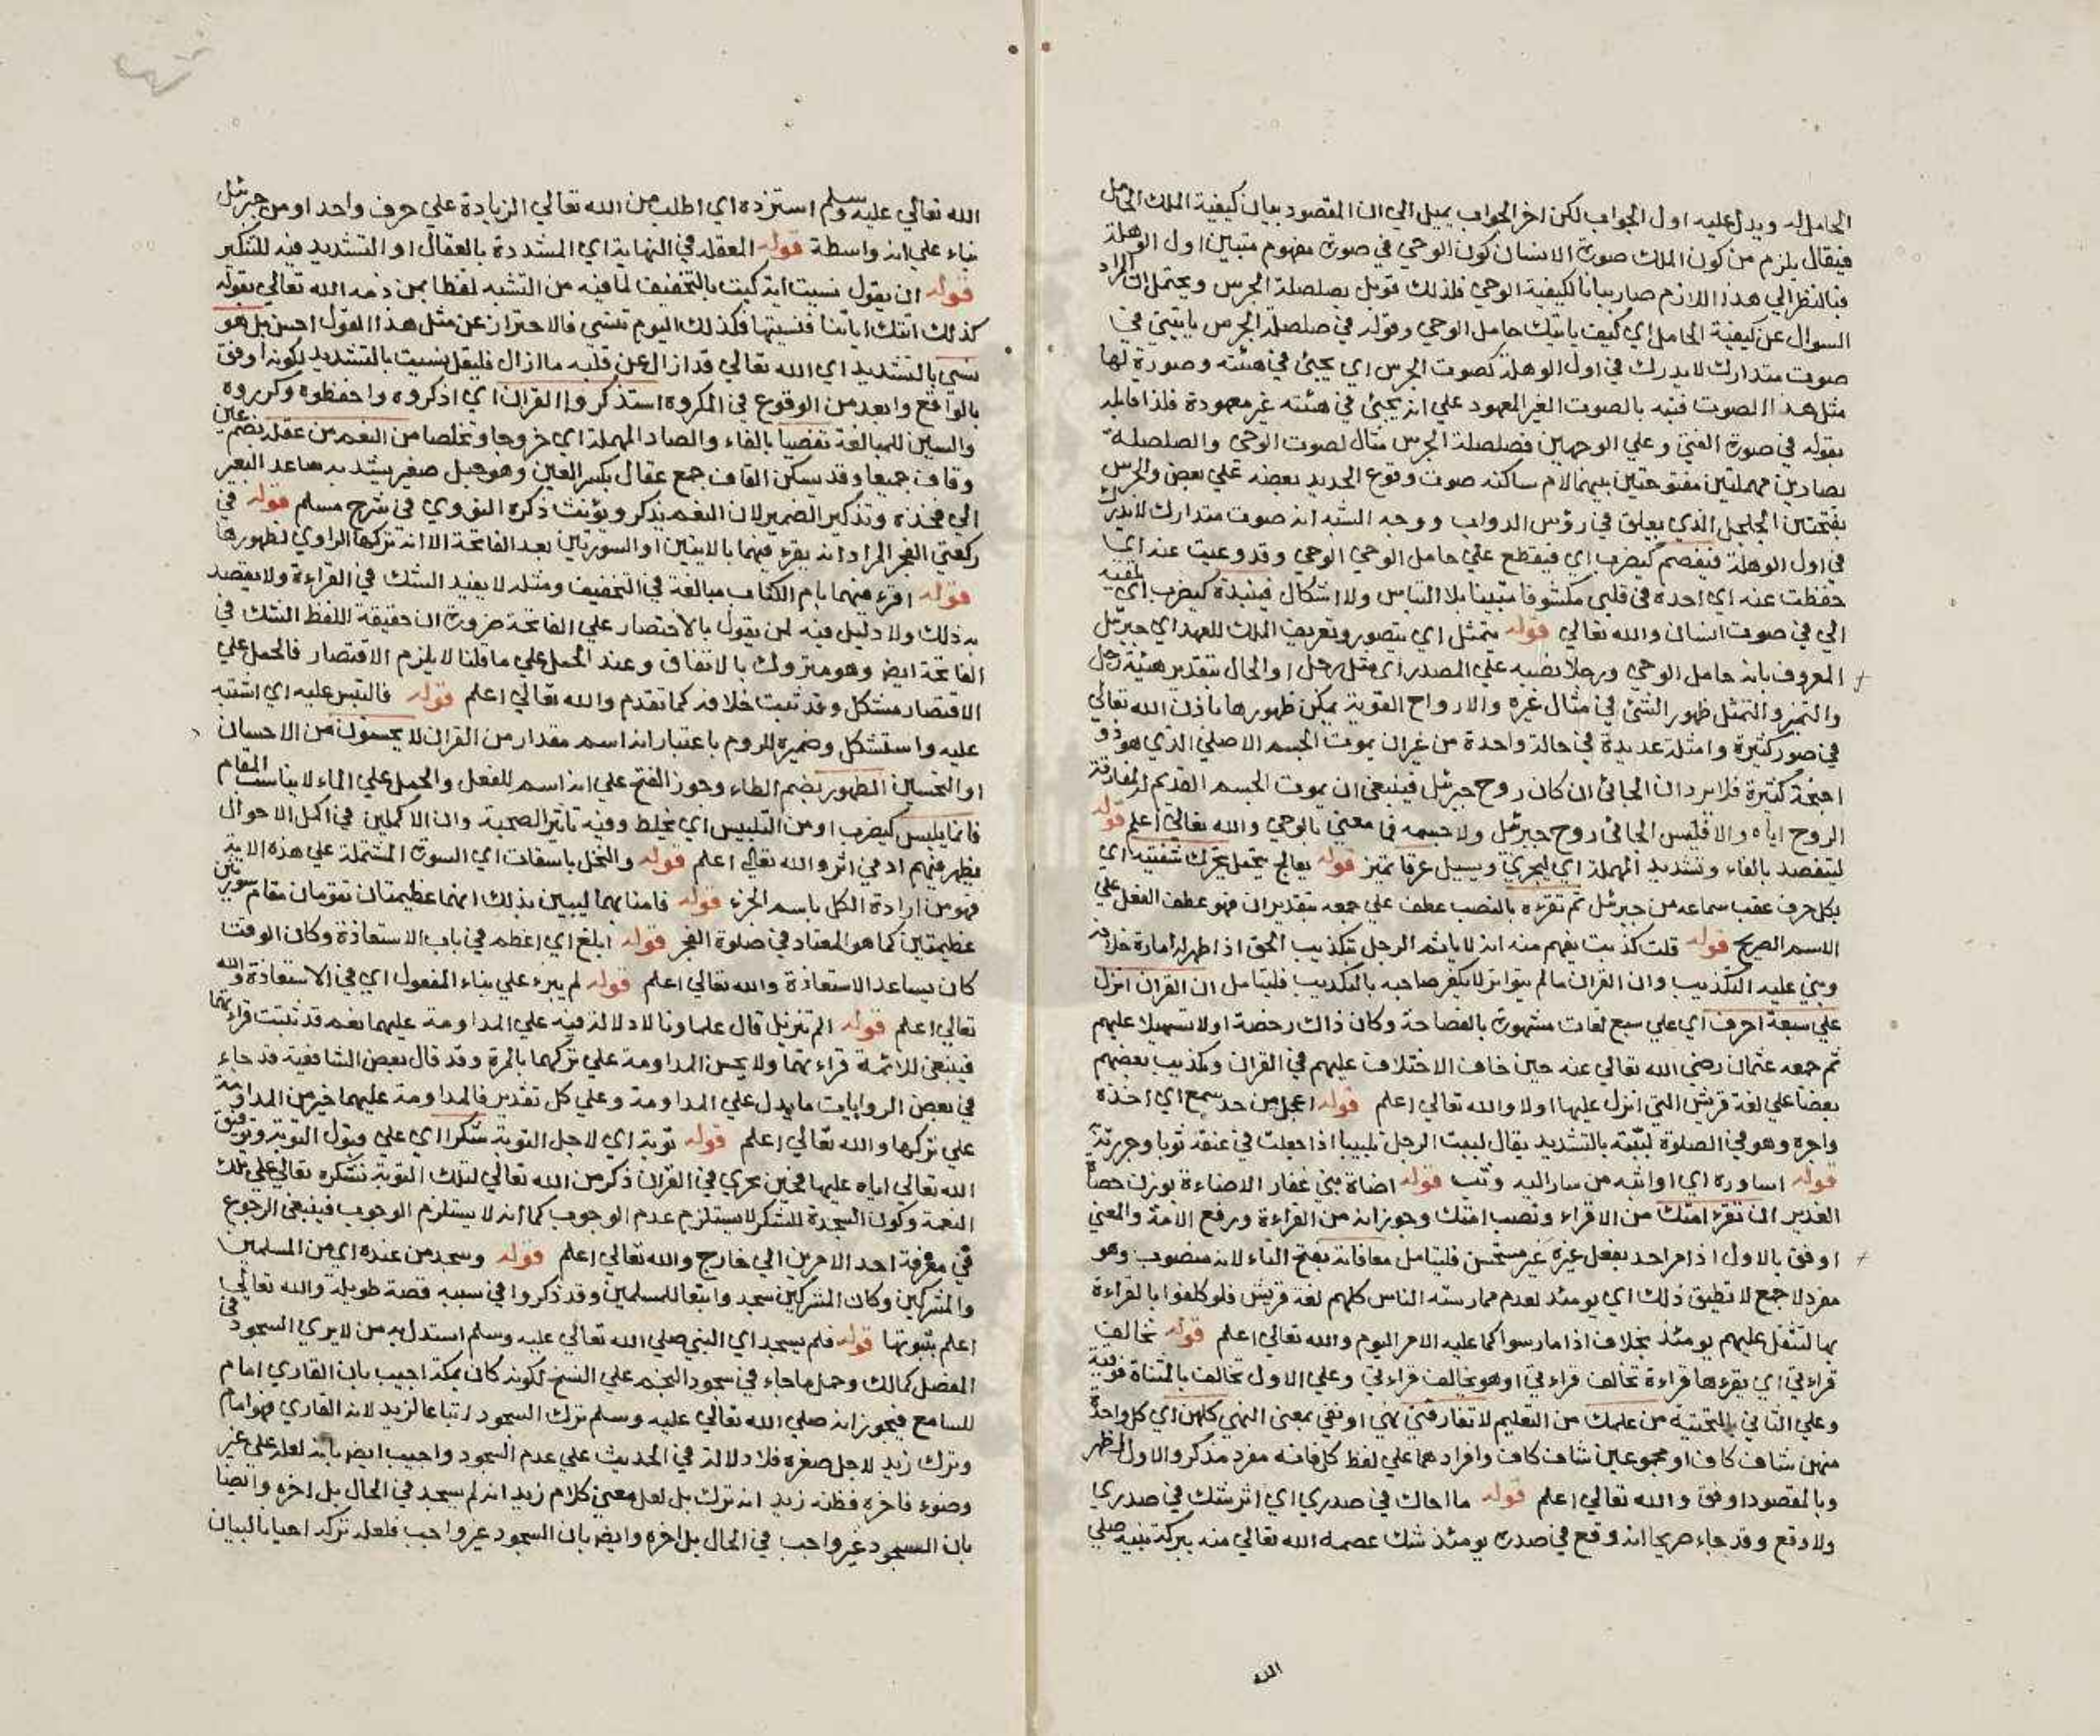 الحامل له ويدل عليه اول الجواب لكن اخر الجواب يميل الي ان المقصود بيان كيفية الملك الحامل
فيقال يلزم من كون الملك صورة الانسان كون الوحي في صورة مفهوم متبين اول الوهلة
فبالنظر الي هذا اللازم صار بيانا لكيفية الوحي فلذلك قوبل بصلصلة الجرس ويحتمل ان المراد
السوال عن كيفية الحامل اي كيف ياتيك حامل الوحي وقوله في صلصلة الجرس ياتيني في
صوت متدارك لا يدرك في اول الوهلة كصوت الجرس اي يجئ في هيئته وصورة لها
مثل هذا الصوت فنبه بالصوت الغير المعهود علي انه يجئ في هيئته غير معهودة فلذا قابله
بقوله في صورة الفتي وعلي الوجهين فصلصلة الجرس مثال لصوت الوحي والصلصلة
بصادين مهملتين مفتوحتين بينهما لام ساكنة صوت وقوع الحديد بعضه علي بعض والجرس
بفتحتين الجلجل الذي يعلق في رؤس الدواب ووجه الشبه انه صوت متدارك لا يدرك
في اول الوهلة فيفصم كيضرب اي فينقطع عني حامل الوحي الوحي وقد وعيت عنه اي
حفظت عنه اي اجده في قلبي مكشوفا متبينا بلا التباس ولا اشكال فينبذه كيضرب اي يلقيه
الي في صوت انسان والله تعالي قوله يتمثل اي يتصور وتعريف الملك للعهد اي جبرئل
المعروف بانه حامل الوحي ورجلا نصبه علي المصدر اي مثل رجل او الحال بتقدير هيئة رجل
والتميز والتمثل ظهور الشئ في مثال غيره والارواح القوية يمكن ظهورها باذن الله تعالي
في صور كثيرة وامثلة عديدة في حالة واحدة من غير ان يموت الجسم الاصلي الذي هو ذو
اجنحة كثيرة فلا يرد ان الجائي ان كان روح جبرئل فينبغي ان يموت الجسم القديم لمفارقة
الروح اياه والا فليس الجائي روح جبرئل ولا جسمه فما معني بالوحي والله تعالي اعلم قوله
ليتفصد بالفاء وتشديد المهملة اي ليجري ويسيل عرقا تميز قوله يعالج يحتمل يحرك شفتيه اي
بكل حرف عقب سماعه من جبرئل ثم تقرءه بالنصب عطف علي جمعه بتقدير ان فهو عطف الفعل علي
الاسم الصريح قوله قلت كذبت يفهم منه انه لا ياثم الرجل بتكذيب الحق اذا ظهر له امارة خلافه
وبني عليه التكذيب وان القران مالم يتواتر لا يكفر صاحبه بالتكذيب فليتامل ان القران انزل
علي سبعة احرف اي علي سبع لغات مشهورة بالفصاحة وكان ذاك رخصة اولا تسهيلا عليهم
ثم جمعه عثمان رضي الله تعالي عنه حين خاف الاختلاف عليهم في القران وتكذيب بعضهم
بعضا علي لغة قريش التي انزل عليها اولا والله تعالي اعلم قوله اعجل من حد سمع اي اخذه
واجره وهو في الصلوة لببته بالتشديد يقال لببت الرجل تلبيبا اذا جعلت في عنقه ثوبا وجررته
قوله اساوره اي اواثبه من سار اليه وثب قوله اضاة بني غفار الاضاءة بوزن حصاة
الغدير ان تقرء امتك من الاقراء ونصب امتك وجوز انه من القراءة ورفع الامة والمعني
اوفق بالاول اذ امر احد بفعل غيره غير مستحسن فليتامل معافاته بفتح التاء لانه منصوب وهو
مفرد لا جمع لا تطيق ذلك اي يومئذ لعدم ممارسة الناس كلهم لغة قريش فلو كلفوا بالقراءة
بها لثقل عليهم يومئذ بخلاف اذا مارسوا كما عليه الامر اليوم والله تعالي اعلم قوله تخالف
قراءتي اي يقرءها قراءة تخالف قراءتي او هو يخالف قراءتي وعلي الاول تخالف بالمثناة فوقية
وعلي الثاني بالتحتية من علمك من التعليم لا تفارقني نهي او نفي بمعني النهي كلهن اي كل واحدة
منهن شاف كاف او مجموعهن شاف كاف وافرادهما علي لفظ كل فانه مفرد مذكر والاول اظهر
وبالمقصود اوفق والله تعالي اعلم قوله ما احاك في صدري اي اثر شك في صدري
ولا وقع وقد جاء صريحا انه وقع في صدره يومئذ شك عصمه الله تعالي منه ببركة نبيه صلي
الله
الله تعالي عليه وسلم استزده اي اطلب من الله تعالي الزيادة علي حرف واحد او من جبرئل
بناء علي انه واسطة قوله المعقلة في النهاية اي المشددة بالعقال او التشديد فيه للتكير
قوله ان يقول نسيت اية كيت بالتخفيف لما فيه من التشبه لفظا بمن ذمه الله تعالي بقوله
كذلك اتتك اياتنا فنسيتها فكذلك اليوم تنسي فالاحتراز عن مثل هذا القول احسن بل هو
نسي بالتشديد اي الله تعالي قد ازال عن قلبه ما ازال فليقل نسيت بالتشديد لكونه اوفق
بالواقع وابعد من الوقوع في المكروه استذكروا القران اي اذكروه واحفظوه وكرروه
والسين للمبالغة تفصيا بالفاء والصاد المهملة اي خروجا وتخلصا من النعم من عقله بضم عين
وقاف جميعا وقد يسكن القاف جمع عقال بكسر العين وهو حبل صغير يشد به ساعد البعير
الي فخذه وتذكير الضمير لان النعم يذكر ويؤنث ذكره النووي في شرح مسلم قوله في
ركعتي الفجر المراد انه يقرء فيهما بالايتين او السورتين بعد الفاتحة الا انه تركها الراوي لظهورها
قوله اقرء فيهما بام الكتاب مبالغة في التخفيف ومثله لا يفيد الشك في القراءة ولا يقصد
به ذلك ولا دليل فيه لمن يقول بالاختصار علي الفاتحة ضرورة ان حقيقة اللفظ الشك في
الفاتحة ايض وهو متروك بالاتفاق وعند الحمل علي ما قلنا لا يلزم الاقتصار فالحمل علي
الاقتصار مشكل وقد ثبت خلافه كما تقدم والله تعالي اعلم قوله فالتبس عليه اي اشتبه
عليه واستشكل وضميره للروم باعتبار انه اسم مقدار من القران لا يحسنون من الاحسان
او التحسين الطهور بضم الطاء وجوز الفتح علي انه اسم للفعل والحمل علي الماء لا يناسب المقام
فانما يلبس كيضرب او من التلبيس اي يخلط وفيه تاثير الصحبة وان الاكملين في اكمل الاحوال
يظهر فيهم ادني اثر والله تعالي اعلم قوله والنخل باسقات اي السورة المشتملة علي هذه الاية
فهو من ارادة الكل باسم الجزء قوله فامنا بهما ليبين بذلك انهما عظيمتان تقومان مقام سورتين
عظيمتين كما هو المعتاد في صلوة الفجر قوله ابلغ اي اعظم في باب الاستعاذة وكان الوقت
كان يساعد الاستعاذة والله تعالي اعلم قوله لم ير علي بناء المفعول اي في الاستعاذة والله
تعالي اعلم قوله الم تنزيل قال علماونا لا دلالة فيه علي المداومة عليهما نعم قد ثبتت قراءتهما
فينبغي للائمة قراءتهما ولا يحسن المداومة علي تركهما بالمرة وقد قال بعض الشافعية قد جاء
في بعض الروايات ما يدل علي المداومة وعلي كل تقدير فالمداومة عليهما خير من المداومة
علي تركها والله تعالي اعلم قوله توبة اي لاجل التوبة شكرا اي علي قبول التوبة وتوفيق
الله تعالي اياه عليها فحين يجري في القران ذكر من الله تعالي لتلك التوبة نشكره تعالي علي تلك
النعمة وكون السجدة للشكر لا يستلزم عدم الوجوب كما انه لا يستلزم الوجوب فينبغي الرجوع
في معرفة احد الامرين الي خارج والله تعالي اعلم قوله وسجد من عنده اي من المسلمين
والمشركين وكان المشركين سجدوا تبعا للمسلمين وقد ذكروا في سببه قصة طويلة والله تعالي
اعلم بثبوتها قوله فلم يسجد اي النبي صلي الله تعالي عليه وسلم استدل به من لا يري السجود في
المفصل كمالك وحمل ما جاء في سجود النجم علي النسخ لكونه كان بمكة اجيب بان القاري امام
للسامع فيجوز انه صلي الله تعالي عليه وسلم ترك السجود اتباعا لزيد لانه القاري فهو امام
وترك زيد لاجل صغره فلا دلالة في الحديث علي عدم السجود واجيب ايض بانه لعله علي غير
وضوء فاخره فظنه زيد انه ترك بل لعل معني كلام زيد انه لم يسجد في الحال بل اخره وايضا
بان السجود غير واجب في الحال بل اخره وايض بان السجود غير واجب فلعله تركه احيانا لبيان